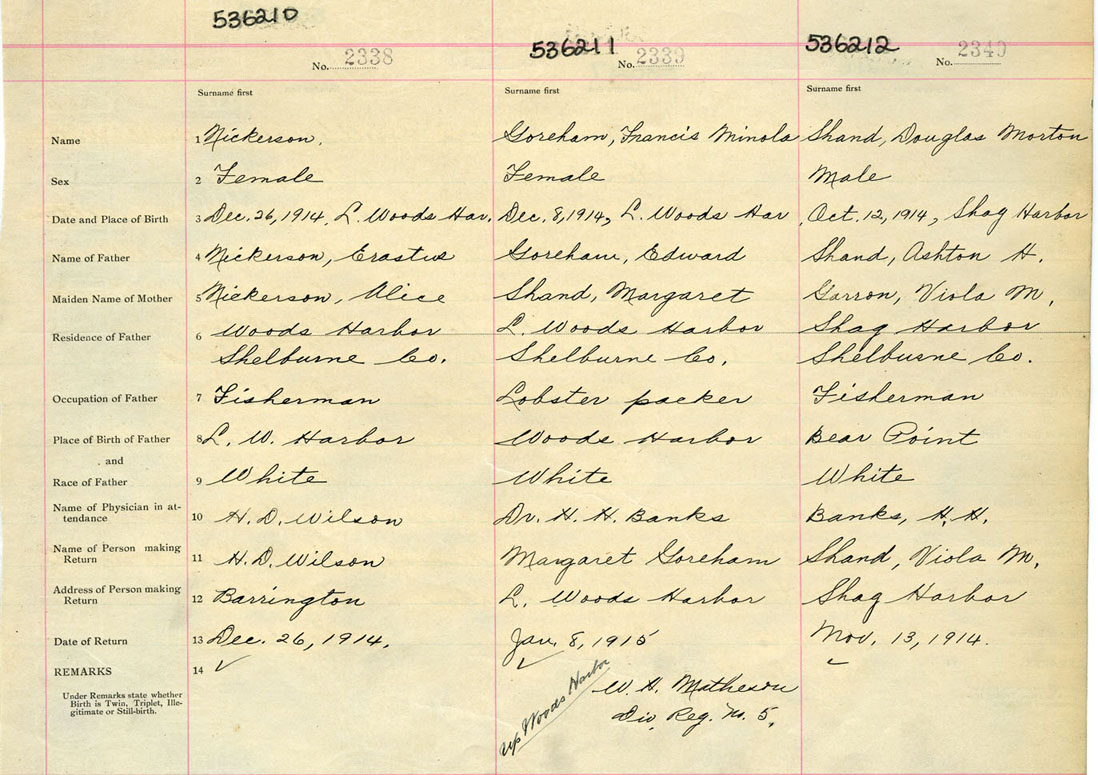 536210
536211
536212
No. 2338
No. 2339
No. 2340
Surname first
Surname first
Surname first
Name 1 Nickerson. Goreham, Francis Minola Shand, Douglas Morton
Sex 2 Female Female Male
Date and Place of Birth 3 Dec. 26, 1914, L. Woods Har. Dec. 8, 1914, L. Woods Har Oct. 12, 1914, Shag Harbor
Name of Father 4 Nickerson, Erastus Goreham, Edward Shand, Ashton H.
Maiden Name of Mother 5 Nickerson, Alice Shand, Margaret Garron, Viola M.
Residence of Father 6 Woods Harbor L. Woods Harbor Shag Harbor
Shelburne Co. Shelburne Co. Shelburne Co.
Occupation of Father 7 Fisherman Lobster packer Fisherman
Place of Birth of Father 8 L. W. Harbor Woods Harbor Bear Point
and
Race of Father 9 White White White
Name of Physician in at-
tendance 10 H. D. Wilson Dr. H. H. Banks Banks, H. H.
Name of Person making
Return 11 H. D. Wilson Margaret Goreham Shand, Viola M.
Address of Person making
Return 12 Barrington L. Woods Harbor Shag Harbor
Date of Return 13 Dec. 26, 1914. Jan. 8, 1915 Nov. 13, 1914.
REMARKS 14 ✓ ✓ ✓
Under Remarks state whether
Birth is Twin, Triplet, Ille-
gitimate or Still-birth.
Up Woods Harbor
W. H. Matheson
Div. Reg. No. 5.